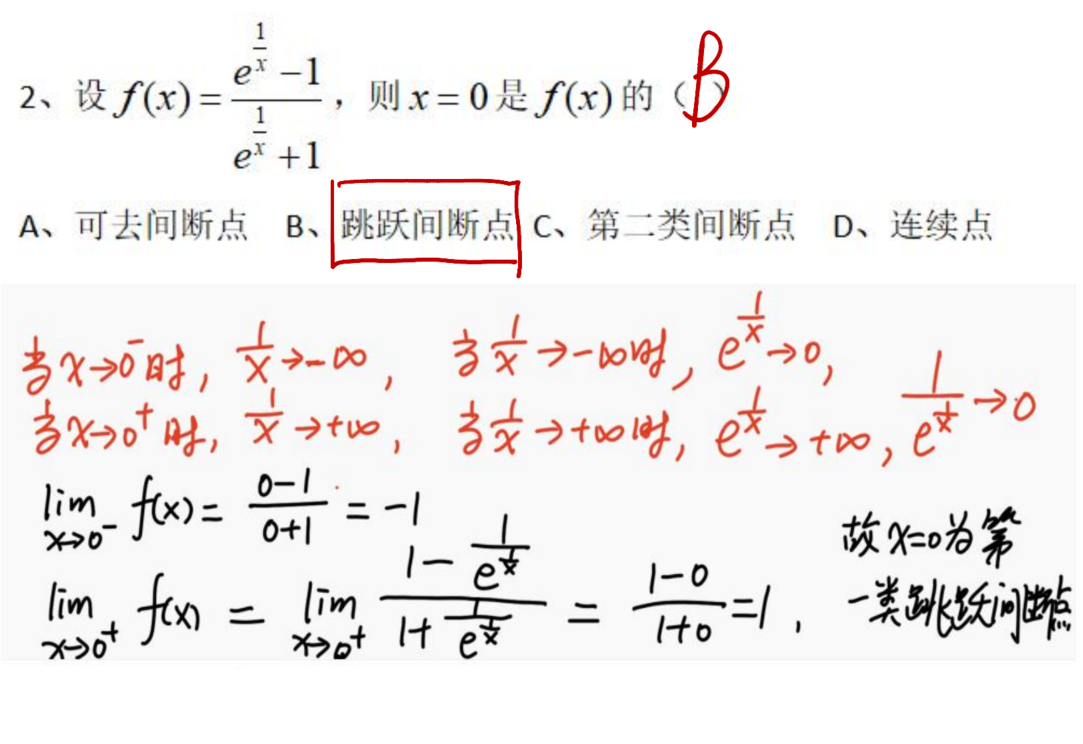 2、设 f(x) = (e^(1/x) − 1)/(e^(1/x) + 1)，则 x = 0 是 f(x) 的（B）
A、可去间断点 B、跳跃间断点 C、第二类间断点 D、连续点
当x→0⁻时，1/x→-∞，当1/x→-∞时，e^(1/x)→0，
当x→0⁺时，1/x→+∞，当1/x→+∞时，e^(1/x)→+∞，1/e^(1/x)→0
lim x→0⁻ f(x) = (0-1)/(0+1) = -1
lim x→0⁺ f(x) = lim x→0⁺ (1 - 1/e^(1/x))/(1 + 1/e^(1/x)) = (1-0)/(1+0) = 1，
故x=0为第
一类跳跃间断点